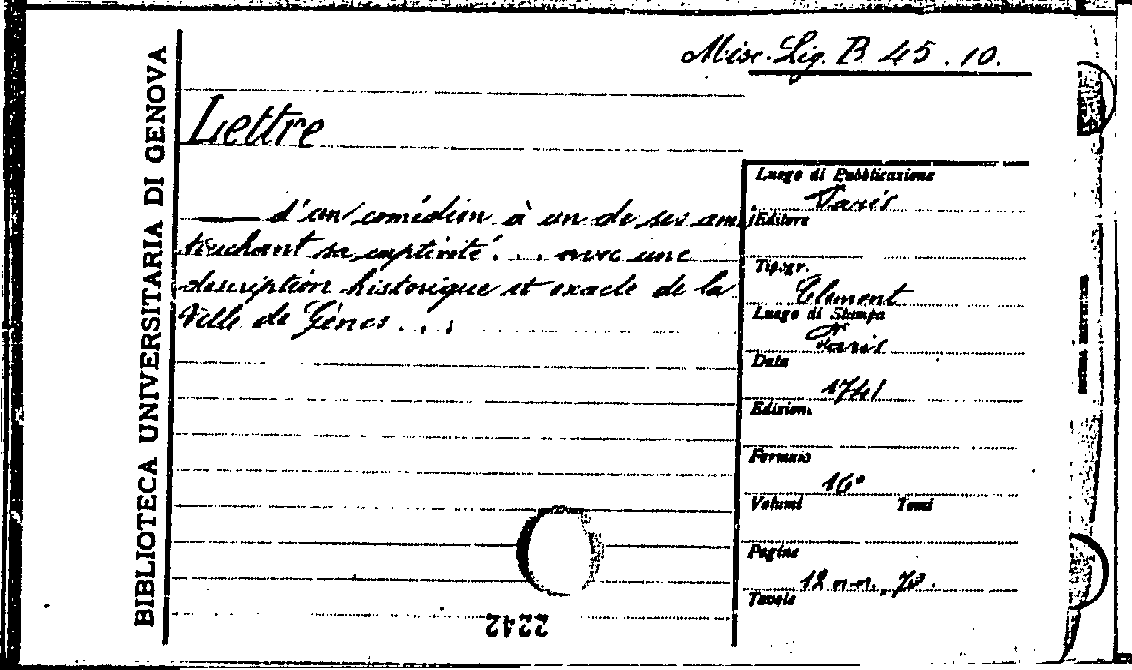 Misc. Lig. B 45 . 10.
BIBLIOTECA UNIVERSITARIA DI GENOVA
Lettre
d'un comédien à un de ses ami
touchant sa captivité . . . avec une
description historique et exacte de la
Ville de Gênes . . .
Luogo di Pubblicazione
Paris
Editore
Tipogr.
Clement
Luogo di Stampa
Paris
Data
1741
Edizion.
Formato
16°
Volumi Tomi
Pagine
12 n.n.,
Tavole
2242